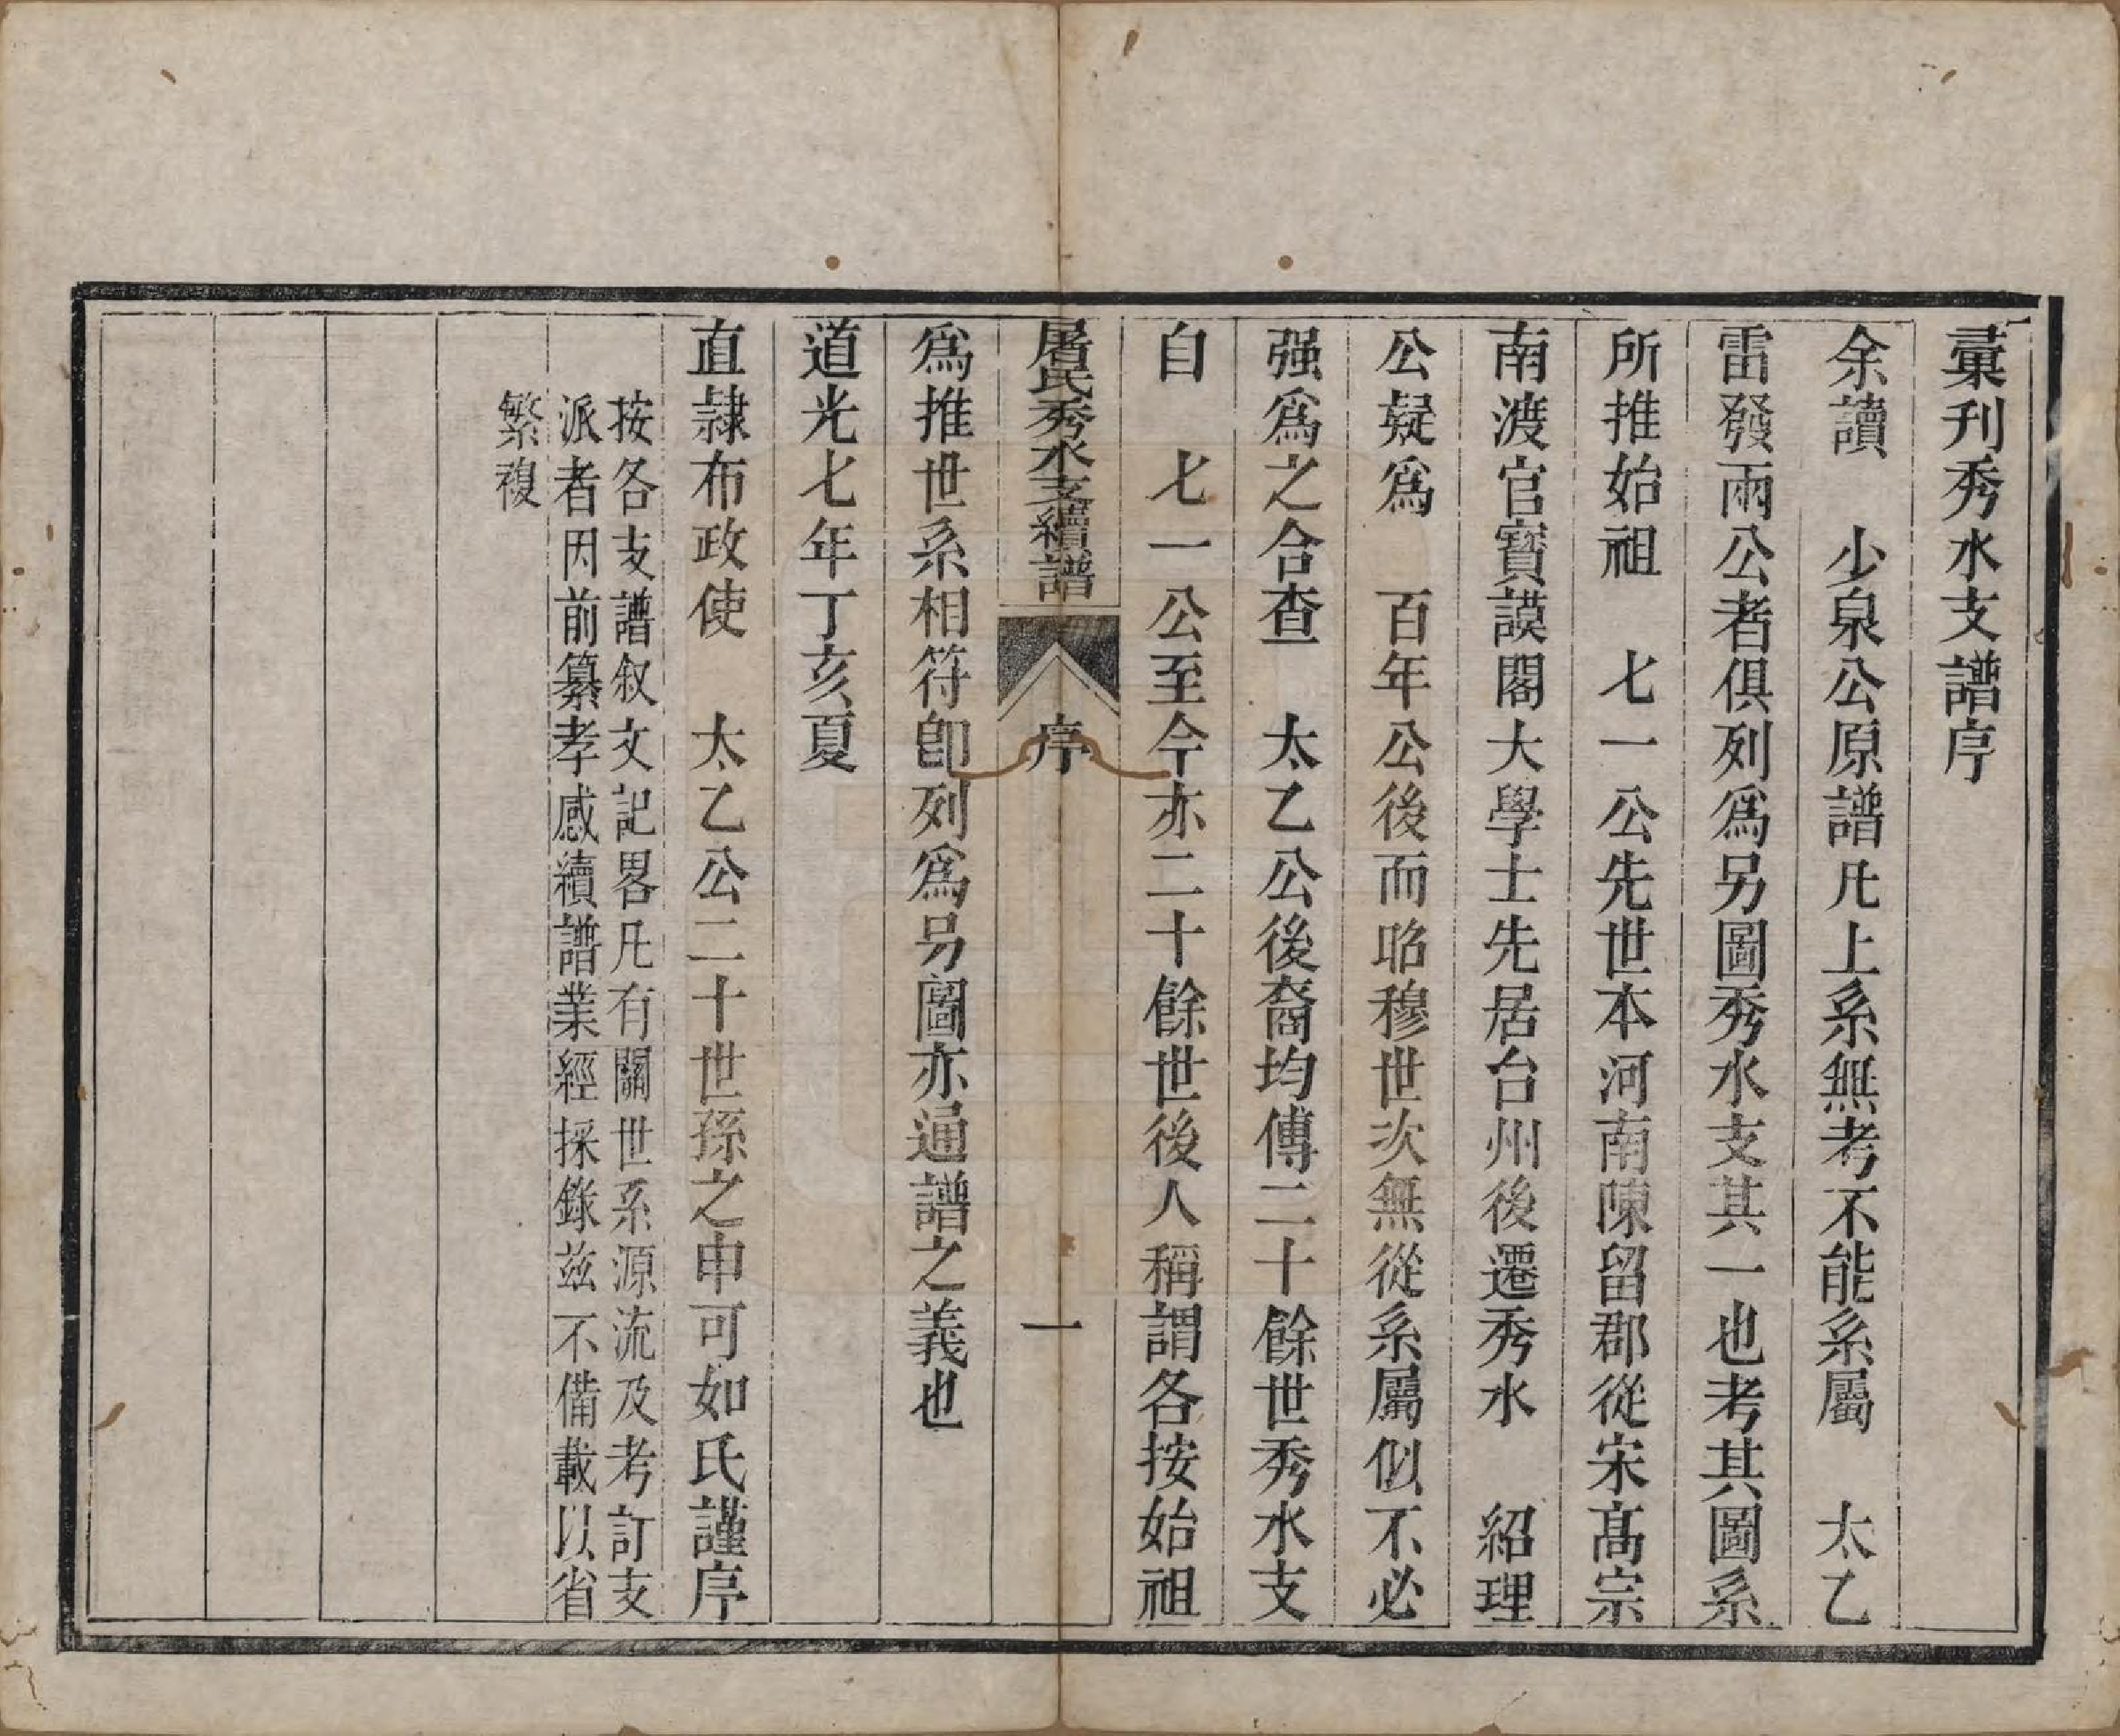 彙刊秀水支譜序
余讀　少泉公原譜凡上系無考不能系屬　太乙
雷發兩公者俱列爲另圖秀水支其一也考其圖系
所推始祖　七一公先世本河南陳留郡從宋髙宗
南渡官寶謨閣大學士先居台州後遷秀水　紹理
公疑爲　百年公後而昭穆世次無從系屬似不必
强爲之合查　太乙公後裔均傳二十餘世秀水支
自　七一公至今亦二十餘世後人稱謂各按始祖
屠氏秀水支續譜　序　一
爲推世系相符卽列爲另圖亦通譜之義也
道光七年丁亥夏
直隷布政使　太乙公二十世孫之申可如氏謹序
按各支譜叙文記畧凡有關世系源流及考訂支
派者因前纂孝感續譜業經採錄兹不備載以省
繁複